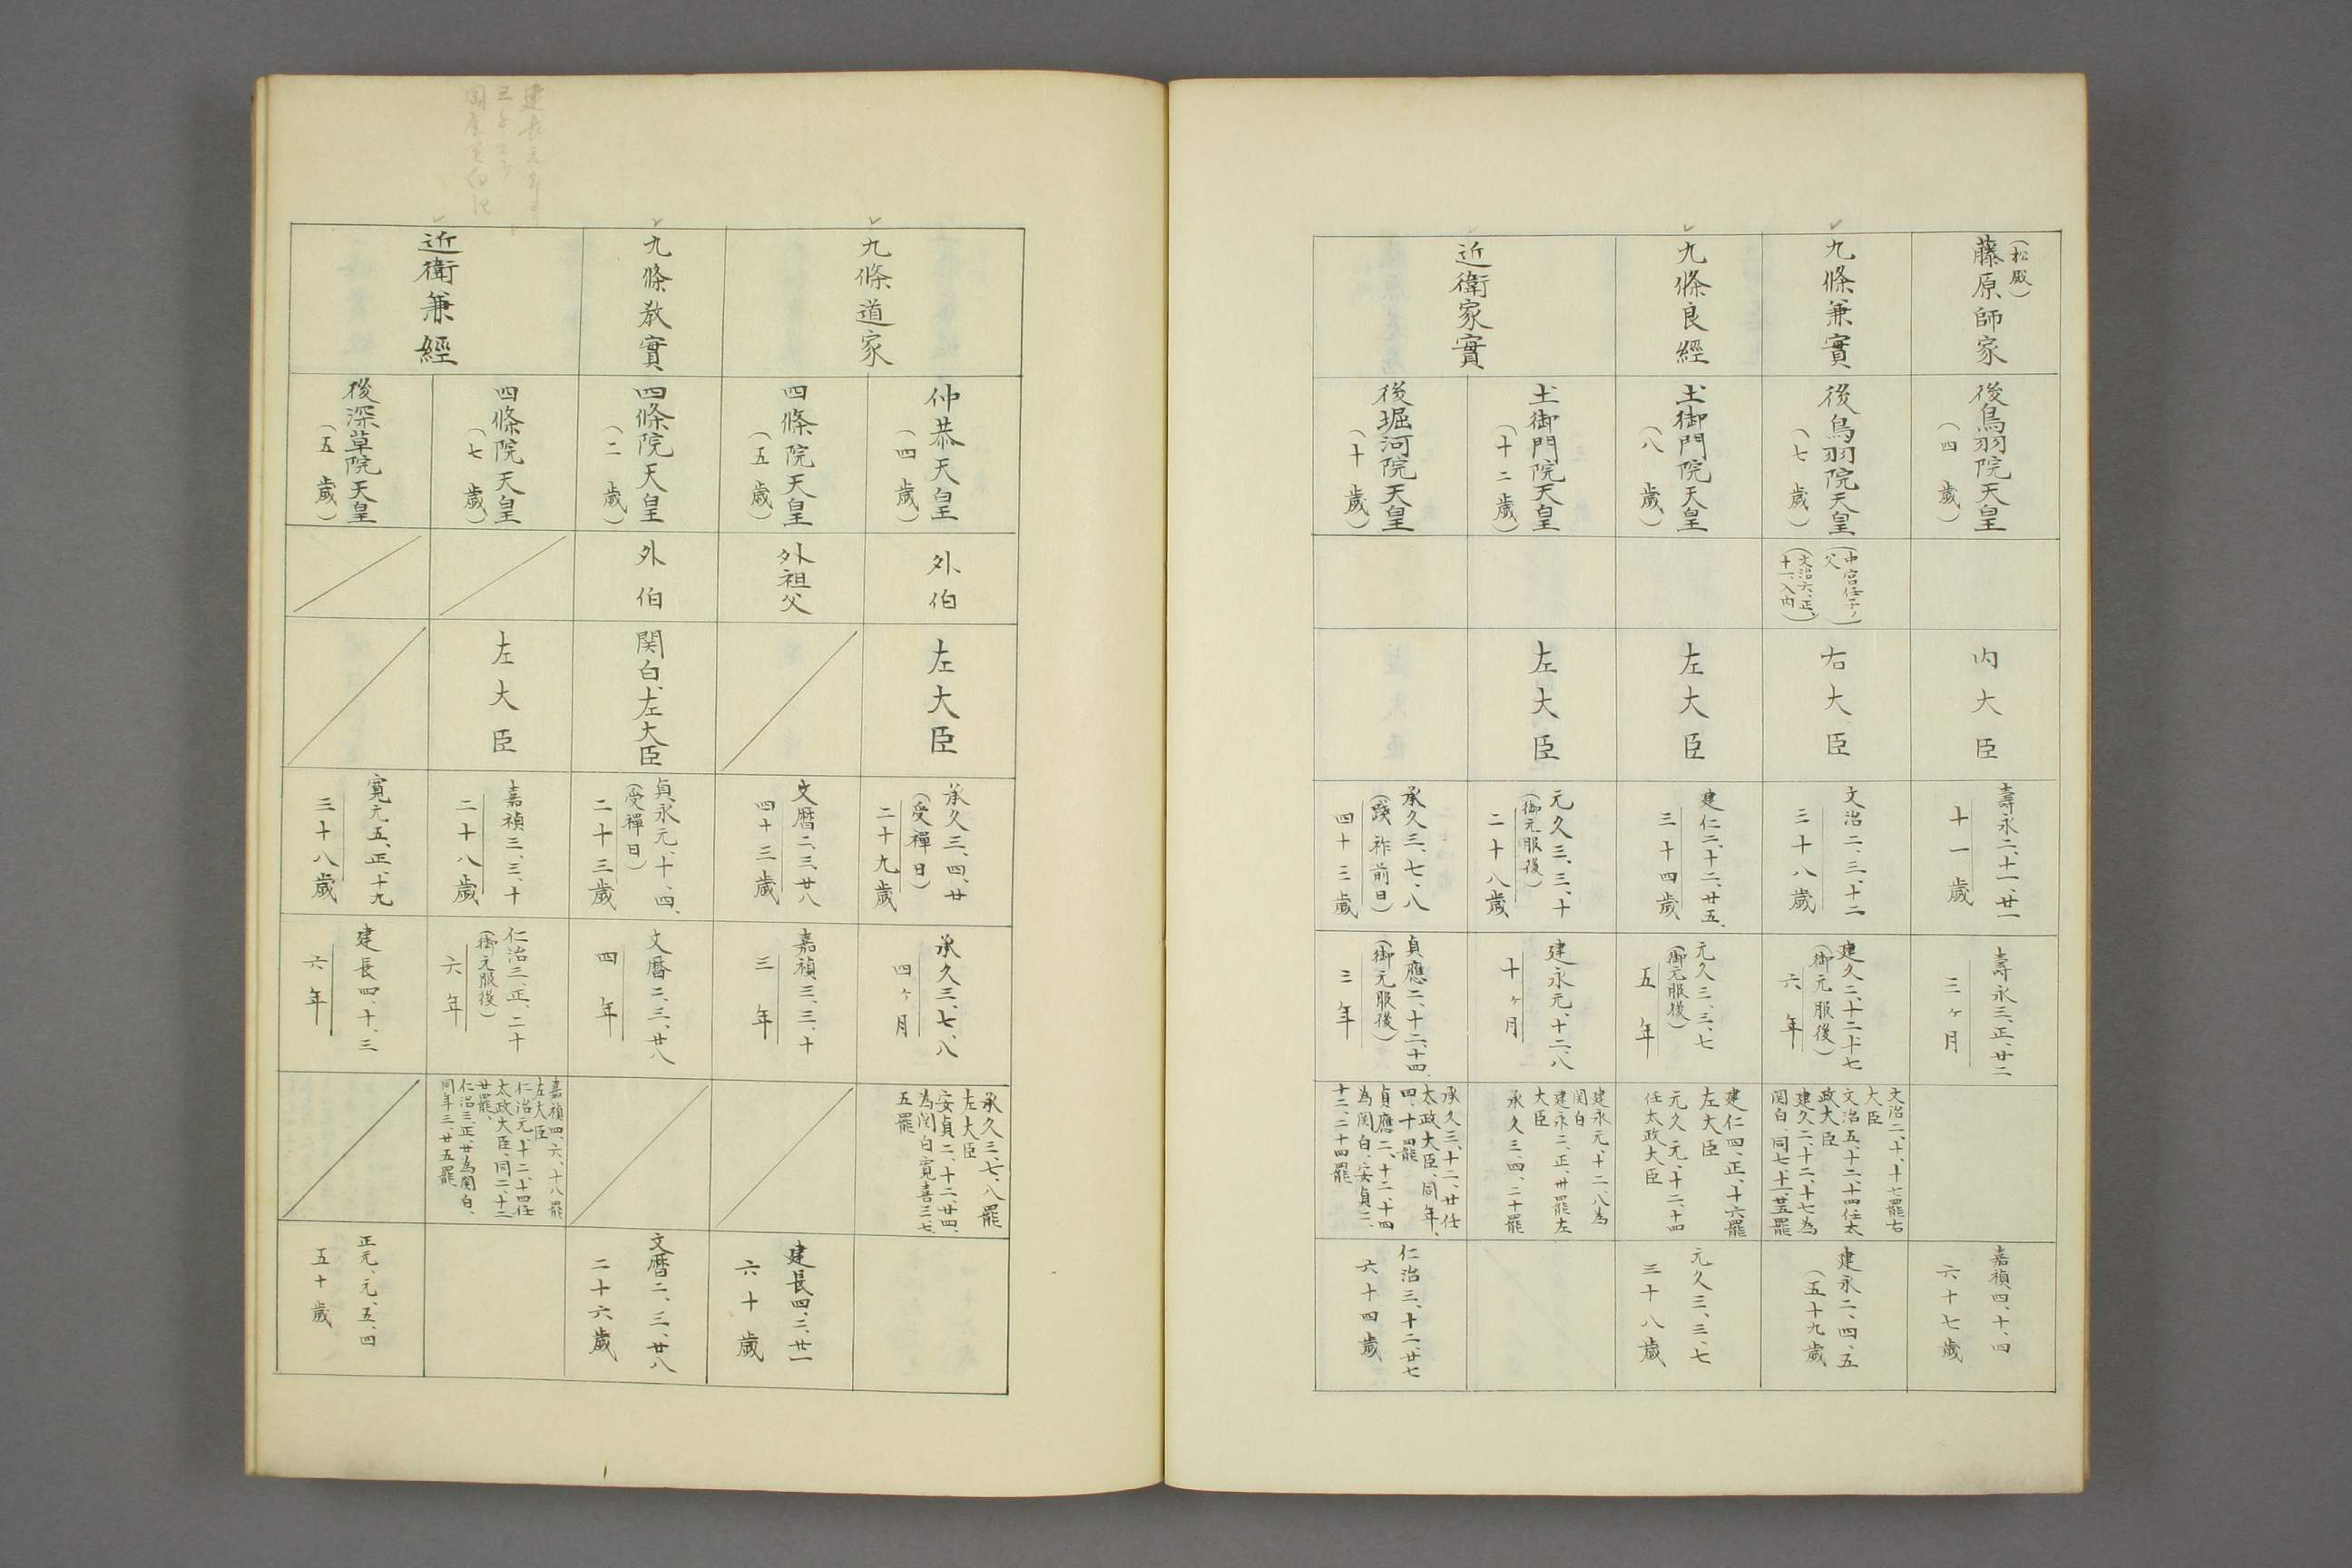 （松殿）
藤原師家
後鳥羽院天皇
（四歳）
内大臣
壽永二、十一、廿一
十一歳
壽永三、正、廿二
三ヶ月
嘉禎四、十、四
六十七歳
九條兼實
後鳥羽院天皇
（七歳）
（中宮任子ノ
父
（文治六、正、
十一、入内）
右大臣
文治二、三、十二
三十八歳
建久二、十二、十七
（御元服後）
六年
文治二、十、十七罷右
大臣
文治五、十二、十四任太
政大臣
建久二、十二、十七為
関白、同七、十一、廿五罷
建永二、四、五
（五十九歳
九條良經
土御門院天皇
（八歳）
左大臣
建仁二、十二、廿五、
三十四歳
元久三、三、七
（御元服後）
五年
建仁四、正、十六罷
左大臣
元久元、十二、十四
任太政大臣
元久三、三、七
三十八歳
近衛家實
土御門院天皇
（十二歳）
左大臣
元久三、三、十
（御元服後）
二十八歳
建永元、十二、八
十ヶ月
建永元、十二、八為
関白
建永二、正、卅罷左
大臣
承久三、四、二十罷
後堀河院天皇
（十歳）
承久三、七、八
（踐祚前日）
四十三歳
貞應二、十二、十四、
（御元服後）
三年
承久三、十二、廿任
太政大臣、同年、
四、十罷
貞應二、十二、十四
為関白、安貞二、
十二、二十四罷
仁治三、十二、廿七
六十四歳
九條道家
仲恭天皇
（四歳）
外伯
左大臣
承久三、四、廿
（受禪日）
二十九歳
承久三、七、八
四ヶ月
承久三、七、八罷
左大臣
安貞二、十二、廿四、
為関白寛喜三、七、
五罷
四條院天皇
（五歳）
外祖父
文暦二、三、廿八
四十三歳
嘉禎三、三、十
三年
建長四、二、廿一
六十歳
九條教實
四條院天皇
（二歳）
外伯
関白、左大臣
貞永元、十、四、
（受禪日）
二十三歳
文暦二、三、廿八
四年
文暦二、三、廿八
二十六歳
近衛兼經
四條院天皇
（七歳）
左大臣
嘉禎三、三、十
二十八歳
仁治三、正、二十
（御元服後）
六年
嘉禎四、六、十八罷
左大臣
仁治元、十二、十四任
太政大臣、同二、十二
廿罷、
仁治三、正、廿為関白、
同年三、廿五罷
後深草院天皇
（五歳）
寛元五、正、十九
三十八歳
建長四、十、三
六年
正元、元、五、四
五十歳